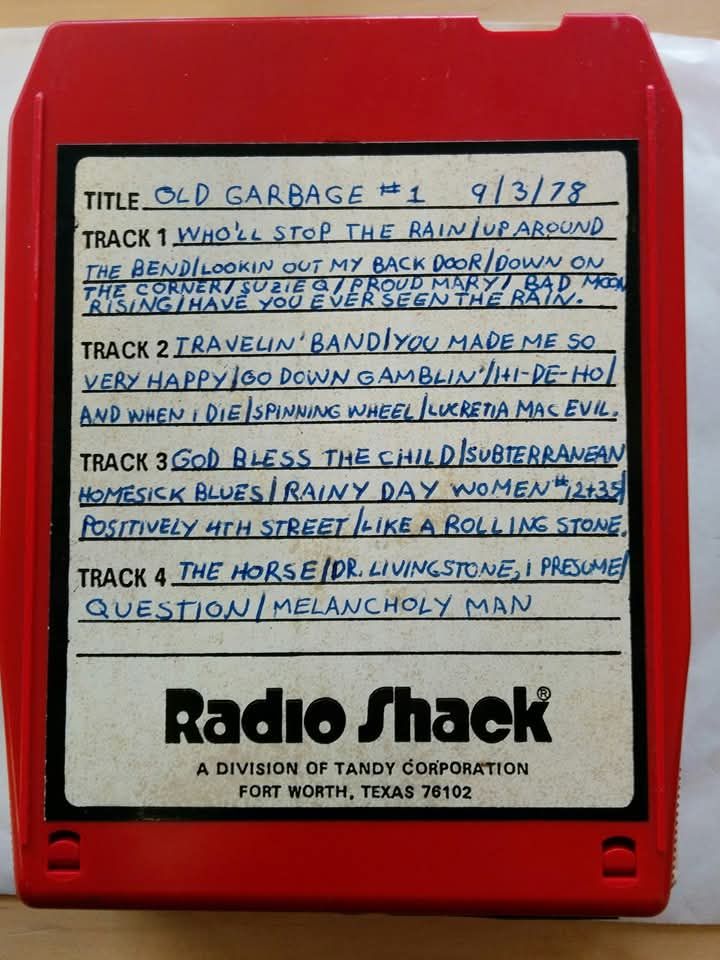 TITLE OLD GARBAGE #1 9/3/78
TRACK 1 WHO'LL STOP THE RAIN/UP AROUND
THE BEND/LOOKIN OUT MY BACK DOOR/DOWN ON
THE CORNER/SUZIE Q/PROUD MARY/BAD MOON
RISING/HAVE YOU EVER SEEN THE RAIN.
TRACK 2 TRAVELIN' BAND/YOU MADE ME SO
VERY HAPPY/GO DOWN GAMBLIN'/HI-DE-HO/
AND WHEN i DIE/SPINNING WHEEL/LUCRETIA MAC EVIL.
TRACK 3 GOD BLESS THE CHILD/SUBTERRANEAN
HOMESICK BLUES/RAINY DAY WOMEN #12+35/
POSITIVELY 4TH STREET/LIKE A ROLLING STONE.
TRACK 4 THE HORSE/DR. LIVINGSTONE, i PRESUME/
QUESTION/MELANCHOLY MAN
Radio Shack®
A DIVISION OF TANDY CORPORATION
FORT WORTH, TEXAS 76102